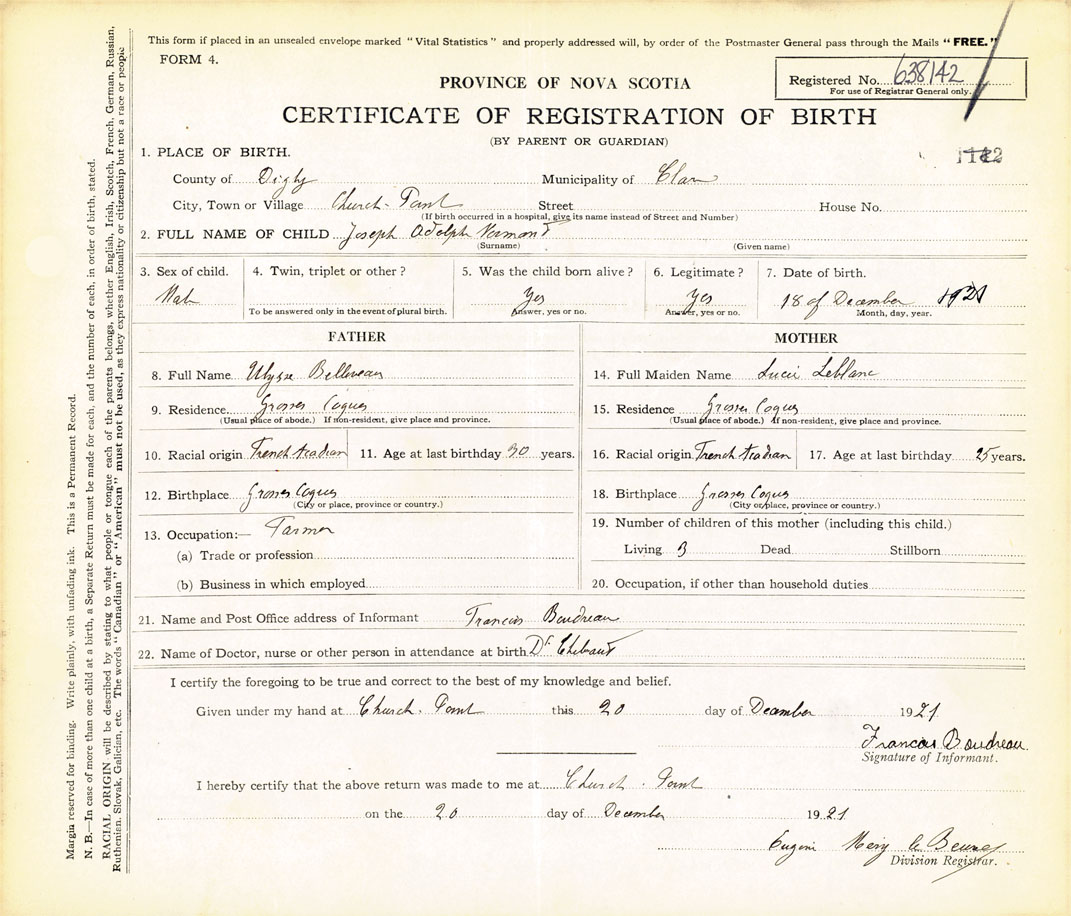 This form if placed in an unsealed envelope marked "Vital Statistics" and properly addressed will, by order of the Postmaster General pass through the Mails "FREE."
FORM 4.
PROVINCE OF NOVA SCOTIA
Registered No. 638142
For use of Registrar General only.
CERTIFICATE OF REGISTRATION OF BIRTH
(BY PARENT OR GUARDIAN)
1. PLACE OF BIRTH.
County of Digby Municipality of Clare
City, Town or Village Church-Point Street House No.
(If birth occurred in a hospital, give its name instead of Street and Number)
2. FULL NAME OF CHILD Joseph Adolph
(Surname) (Given name)
3. Sex of child. 4. Twin, triplet or other? 5. Was the child born alive? 6. Legitimate? 7. Date of birth.
Male Yes Yes 18 of December 1921
To be answered only in the event of plural birth. Answer, yes or no. Answer, yes or no. Month, day, year.
FATHER MOTHER
8. Full Name Ulysse Belliveau 14. Full Maiden Name Lucie Leblanc
9. Residence Grosses Coques 15. Residence Grosses Coques
(Usual place of abode.) If non-resident, give place and province. (Usual place of abode.) If non-resident, give place and province.
10. Racial origin French Acadian 11. Age at last birthday 30 years. 16. Racial origin French Acadian 17. Age at last birthday 25 years.
12. Birthplace Grosses Coques 18. Birthplace Grosses Coques
(City or place, province or country.) (City or place, province or country.)
13. Occupation:— Farmer 19. Number of children of this mother (including this child.)
(a) Trade or profession Living 3 Dead Stillborn
(b) Business in which employed 20. Occupation, if other than household duties
21. Name and Post Office address of Informant Francois Boudreau
22. Name of Doctor, nurse or other person in attendance at birth. Dr
I certify the foregoing to be true and correct to the best of my knowledge and belief.
Given under my hand at Church-Point this 20 day of December 1921
Francois Boudreau
Signature of Informant.
I hereby certify that the above return was made to me at Church-Point
on the 20 day of December 1921
Division Registrar.
Margin reserved for binding. Write plainly, with unfading ink. This is a Permanent Record.
N. B.—In case of more than one child at a birth, a Separate Return must be made for each, and the number of each, in order of birth, stated.
RACIAL ORIGIN will be described by stating to what people or tongue each of the parents belongs, whether English, Irish, Scotch, French, German, Russian,
Ruthenian, Slovak, Galician, etc. The words "Canadian" or "American" must not be used, as they express nationality or citizenship but not a race or people